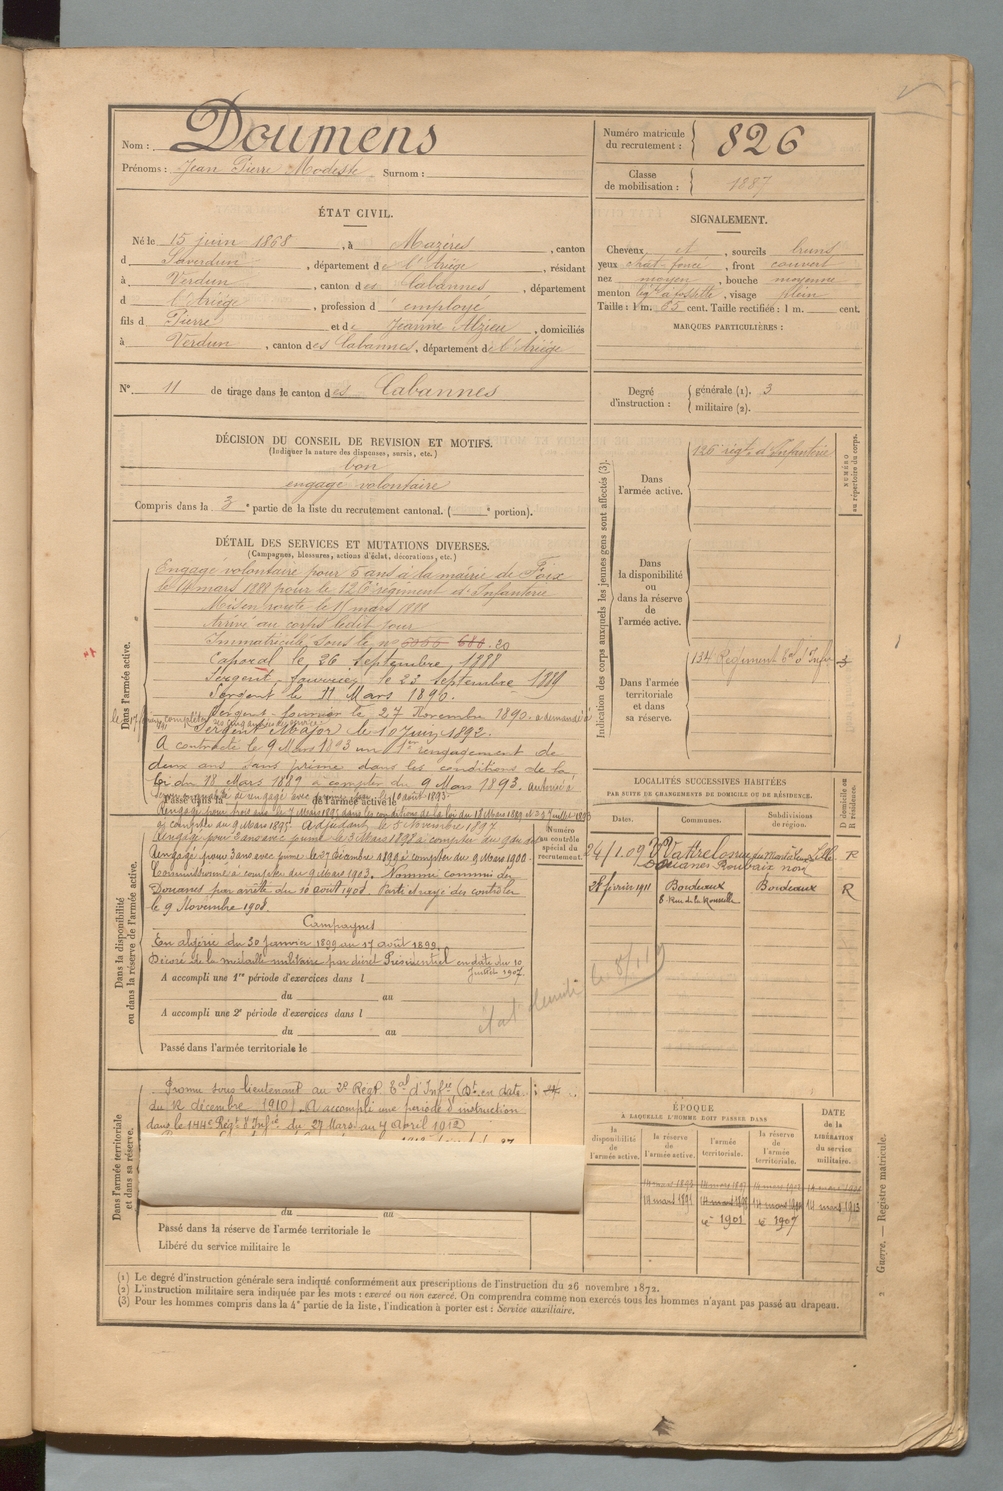 Nom : Doumens
Prénoms : Jean Pierre Modeste Surnom :
Numéro matricule du recrutement : 826
Classe de mobilisation : 1887
ÉTAT CIVIL.
Né le 15 juin 1868, à Mazères, canton
d Saverdun, département de l'Ariège, résidant
à Verdun, canton des Cabannes, département
d l'Ariège, profession d'employé
fils d Pierre et de Jeanne Alzieu, domiciliés
à Verdun, canton des Cabannes, département de l'Ariège
N° 11 de tirage dans le canton des Cabannes
SIGNALEMENT.
Cheveux et, sourcils bruns
yeux chat. foncé, front couvert
nez moyen, bouche moyenne
menton à fossette, visage plein
Taille : 1 m. 65 cent. Taille rectifiée : 1 m. cent.
MARQUES PARTICULIÈRES :
Degré d'instruction : générale (1). 3
militaire (2).
DÉCISION DU CONSEIL DE REVISION ET MOTIFS.
(Indiquer la nature des dispenses, sursis, etc.)
bon
engagé volontaire
Compris dans la 3e partie de la liste du recrutement cantonal. ( e portion).
DÉTAIL DES SERVICES ET MUTATIONS DIVERSES.
(Campagnes, blessures, actions d'éclat, décorations, etc.)
Dans l'armée active.
Engagé volontaire pour 5 ans à la mairie de Foix
le mars 1888 pour le 126e régiment d'Infanterie
Mis en route le mars 1888
Arrivé au corps ledit jour
Immatriculé sous le n° 20
Caporal le 26 Septembre 1888
Sergent-fourrier le 23 septembre 1889
Sergent le 11 Mars 1890.
Sergent-fourrier le 27 Novembre 1890.
Sergent Major le 10 Juin 1892.
A contracté le 9 Mars 1893 un 1er rengagement de
deux ans sans prime dans les conditions de la
loi du 18 Mars 1889 à compter du 9 Mars 1893.
Passé dans la de l'armée active le
Rengagé pour trois ans le 7 Mars 1895 dans les conditions de la loi du 18 Mars 1889
à compter du 9 Mars 1895. Adjudant le 5 Novembre 1897
Dans la disponibilité ou dans la réserve de l'armée active.
Rengagé pour 2 ans avec prime le 3 Mars 1898 à compter du 9
Rengagé pour 3 ans avec prime le 27 Décembre 1899 à compter du 9 Mars 1900.
Commissionné à compter du 9 Mars 1903. Nommé commis des
Douanes par arrêté du 10 août 1908. Parti et rayé des contrôles
le 9 Novembre 1908.
Campagnes
En Algérie du 30 janvier 1899 au 17 août 1899.
Décoré de la médaille militaire par décret Présidentiel en date du 10
juillet 1907.
A accompli une 1re période d'exercices dans l
du au
A accompli une 2e période d'exercices dans l
du au
Passé dans l'armée territoriale le
Numéro au contrôle spécial du recrutement.
Dans l'armée territoriale et dans sa réserve.
Promu sous lieutenant au 2e Régt. d'Infie en date
du 12 décembre 1910). A accompli une période d'instruction
dans le 144e Régt d'Infie du 27 Mars au 7 Avril 1912
du au
Passé dans la réserve de l'armée territoriale le
Libéré du service militaire le
Indication des corps auxquels les jeunes gens sont affectés (3).
Dans l'armée active.
126 régt d'Infanterie
NUMÉRO au répertoire du corps.
Dans la disponibilité ou dans la réserve de l'armée active.
Dans l'armée territoriale et dans sa réserve.
134 Régiment d'Infie
LOCALITÉS SUCCESSIVES HABITÉES
PAR SUITE DE CHANGEMENTS DE DOMICILE OU DE RÉSIDENCE.
Dates. Communes. Subdivisions de région. D domicile ou R résidence.
24/1.09 Wattrelos Lille R
Douanes Roubaix nord
février 1911 Bordeaux Bordeaux R
8 Rue de la Rousselle
ÉPOQUE
À LAQUELLE L'HOMME DOIT PASSER DANS
la disponibilité de l'armée active.
la réserve de l'armée active.
l'armée territoriale.
la réserve de l'armée territoriale.
DATE de la LIBÉRATION du service militaire.
14 mars 1893 14 mars
14 mars 14 mars 14 mars 14 mars 1913
1901 1907
(1) Le degré d'instruction générale sera indiqué conformément aux prescriptions de l'instruction du 26 novembre 1872.
(2) L'instruction militaire sera indiquée par les mots : exercé ou non exercé. On comprendra comme non exercés tous les hommes n'ayant pas passé au drapeau.
(3) Pour les hommes compris dans la 4e partie de la liste, l'indication à porter est : Service auxiliaire.
2 Guerre. — Registre matricule.